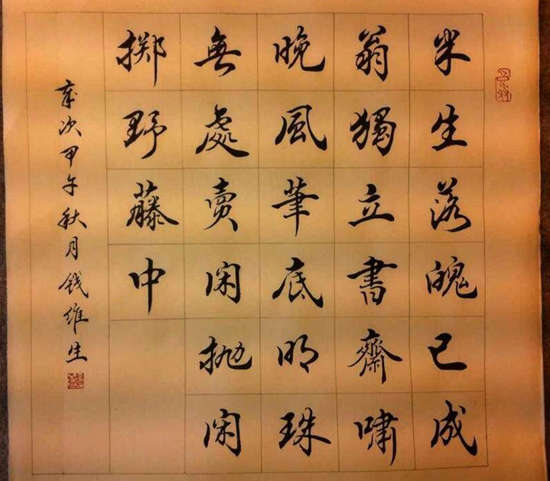 半生落魄已成
翁獨立書齋嘯
晚風筆底明珠
無處賣闲抛闲
擲野藤中
岁次甲午秋月钱维生